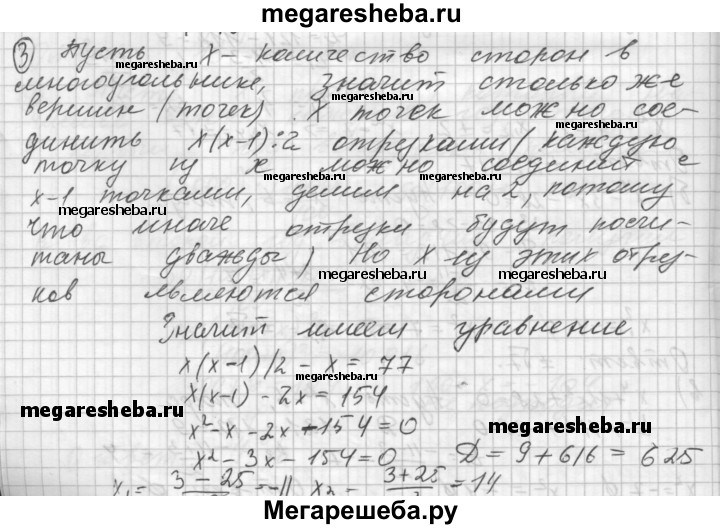 megaresheba.ru
③ Пусть X – количество сторон в
многоугольнике, Значит столько же
megaresheba.ru
вершин (точек). X точек можно сое-
megaresheba.ru megaresheba.ru
динить x(x-1):2 отрезками (каждую
точку из x можно соединить с
megaresheba.ru megaresheba.ru
x-1 точками, делим на 2, потому
megaresheba.ru
что иначе отрезки будут посчи-
таны дважды) Но X из этих отрез-
megaresheba.ru megaresheba.ru
ков являются сторонами
Значит имеем уравнение
x(x-1)/2 - x = 77
megaresheba.ru
x(x-1) - 2x = 154
megaresheba.ru megaresheba.ru
x²-x-2x-154=0
x²-3x-154=0 D=9+616=625
x₁= 3-25 =-11 x₂- 3+25 =14
Мегарешеба.ру